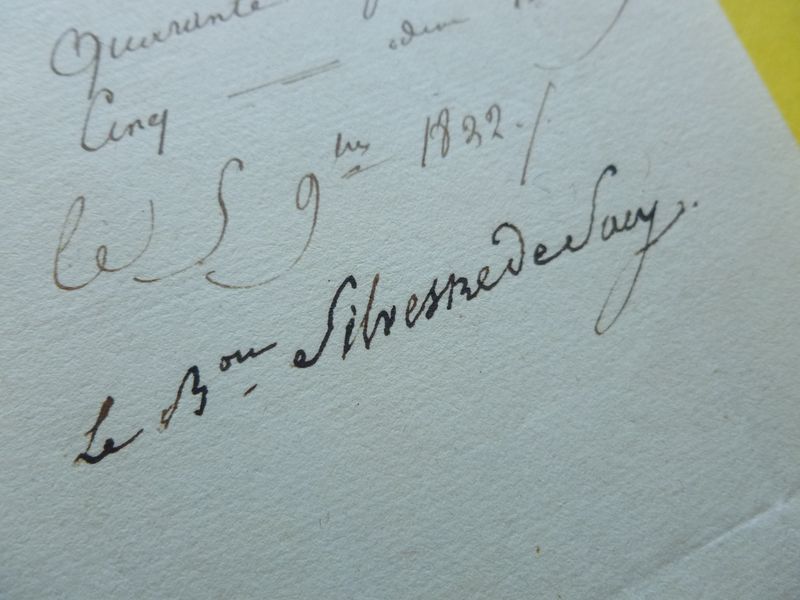 Quarante
Cinq
le 5 9bre 1822./.
Le Bon Silvestre de Sacy.